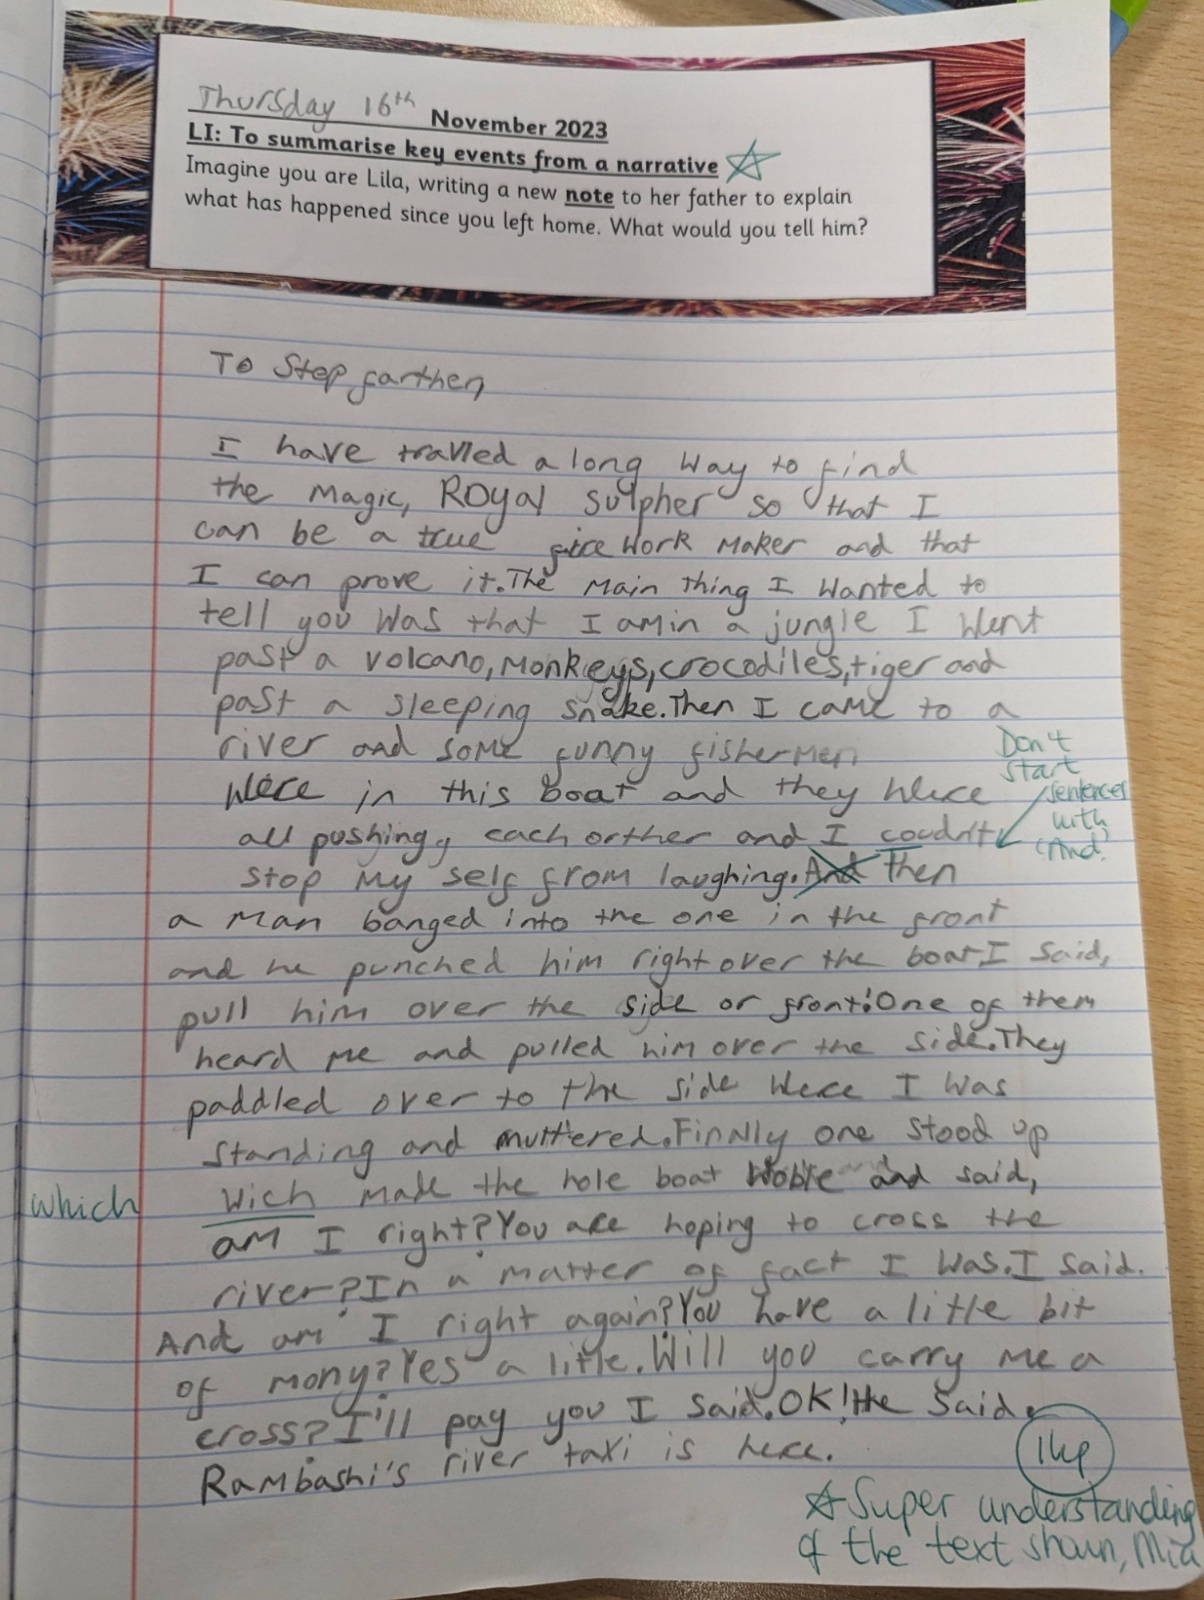 Thursday 16th November 2023
LI: To summarise key events from a narrative
Imagine you are Lila, writing a new note to her father to explain
what has happened since you left home. What would you tell him?
To Step farther,
I have travlled a long way to find
the magic, Royal sulpher so that I
can be a true firework maker and that
I can prove it. The main thing I wanted to
tell you was that I am in a jungle I went
past a volcano, monkeys, crocodiles, tiger and
past a sleeping snake. Then I came to a
river and some funny fishermen
were in this boat and they were
all pushing, each orther and I coudnt
stop my self from laughing. And then
Don't
start
sentences
with
'And'
a man banged into the one in the front
and he punched him right over the boat. I said,
pull him over the side or front! One of them
heard me and pulled him over the side. They
paddled over to the side were I was
standing and muttered. Finnly one stood up
which
wich made the hole boat woble and said,
am I right? You are hoping to cross the
river? In a matter of fact I was. I said.
And am I right again? You have a little bit
of mony? Yes a litle. Will you carry me a
cross? I'll pay you I said. OK! He said.
Rambashi's river taxi is here.
1hp
Super understanding
of the text shown, Mia